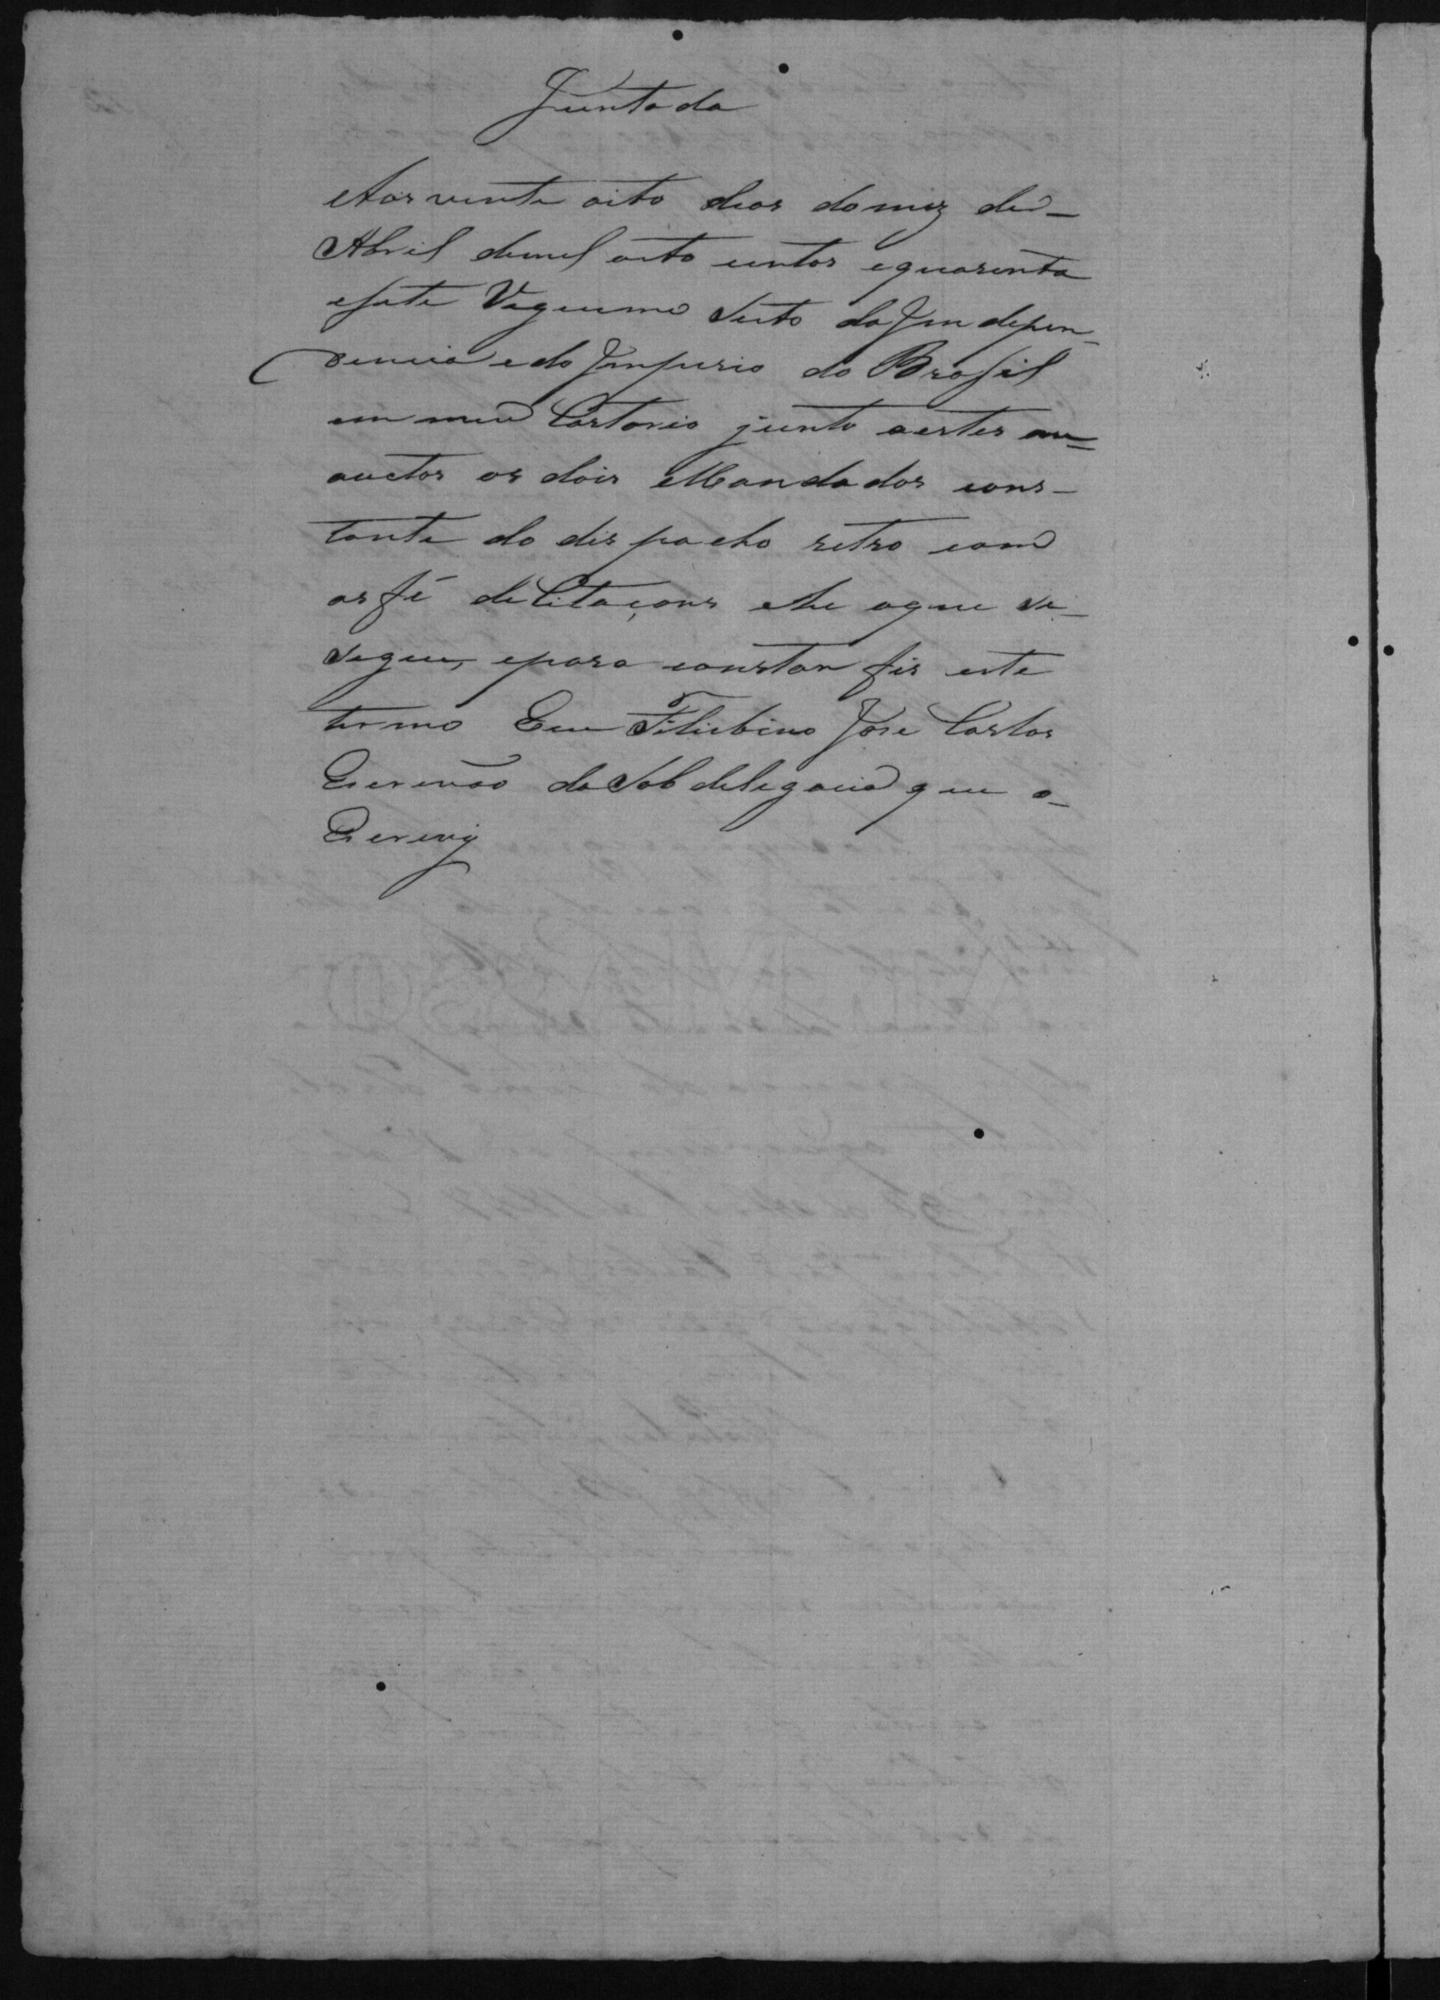 Juntada
Aos vinte oito dias do mez de
Abril de mil oito centos e quarenta
e sete Vigessimo Seisto da Indepen-
dencia e do Imperio do Brasil
em meu Cartorio junto a estes
auctos os dois Mandados cons-
tante do dispacho retro com
as fé de Citaçons he o que se
segue, e para constar fis este
termo Eu Filisbino Jose Carlos
Escrivão da Sobdelegacia que o
Escrevy